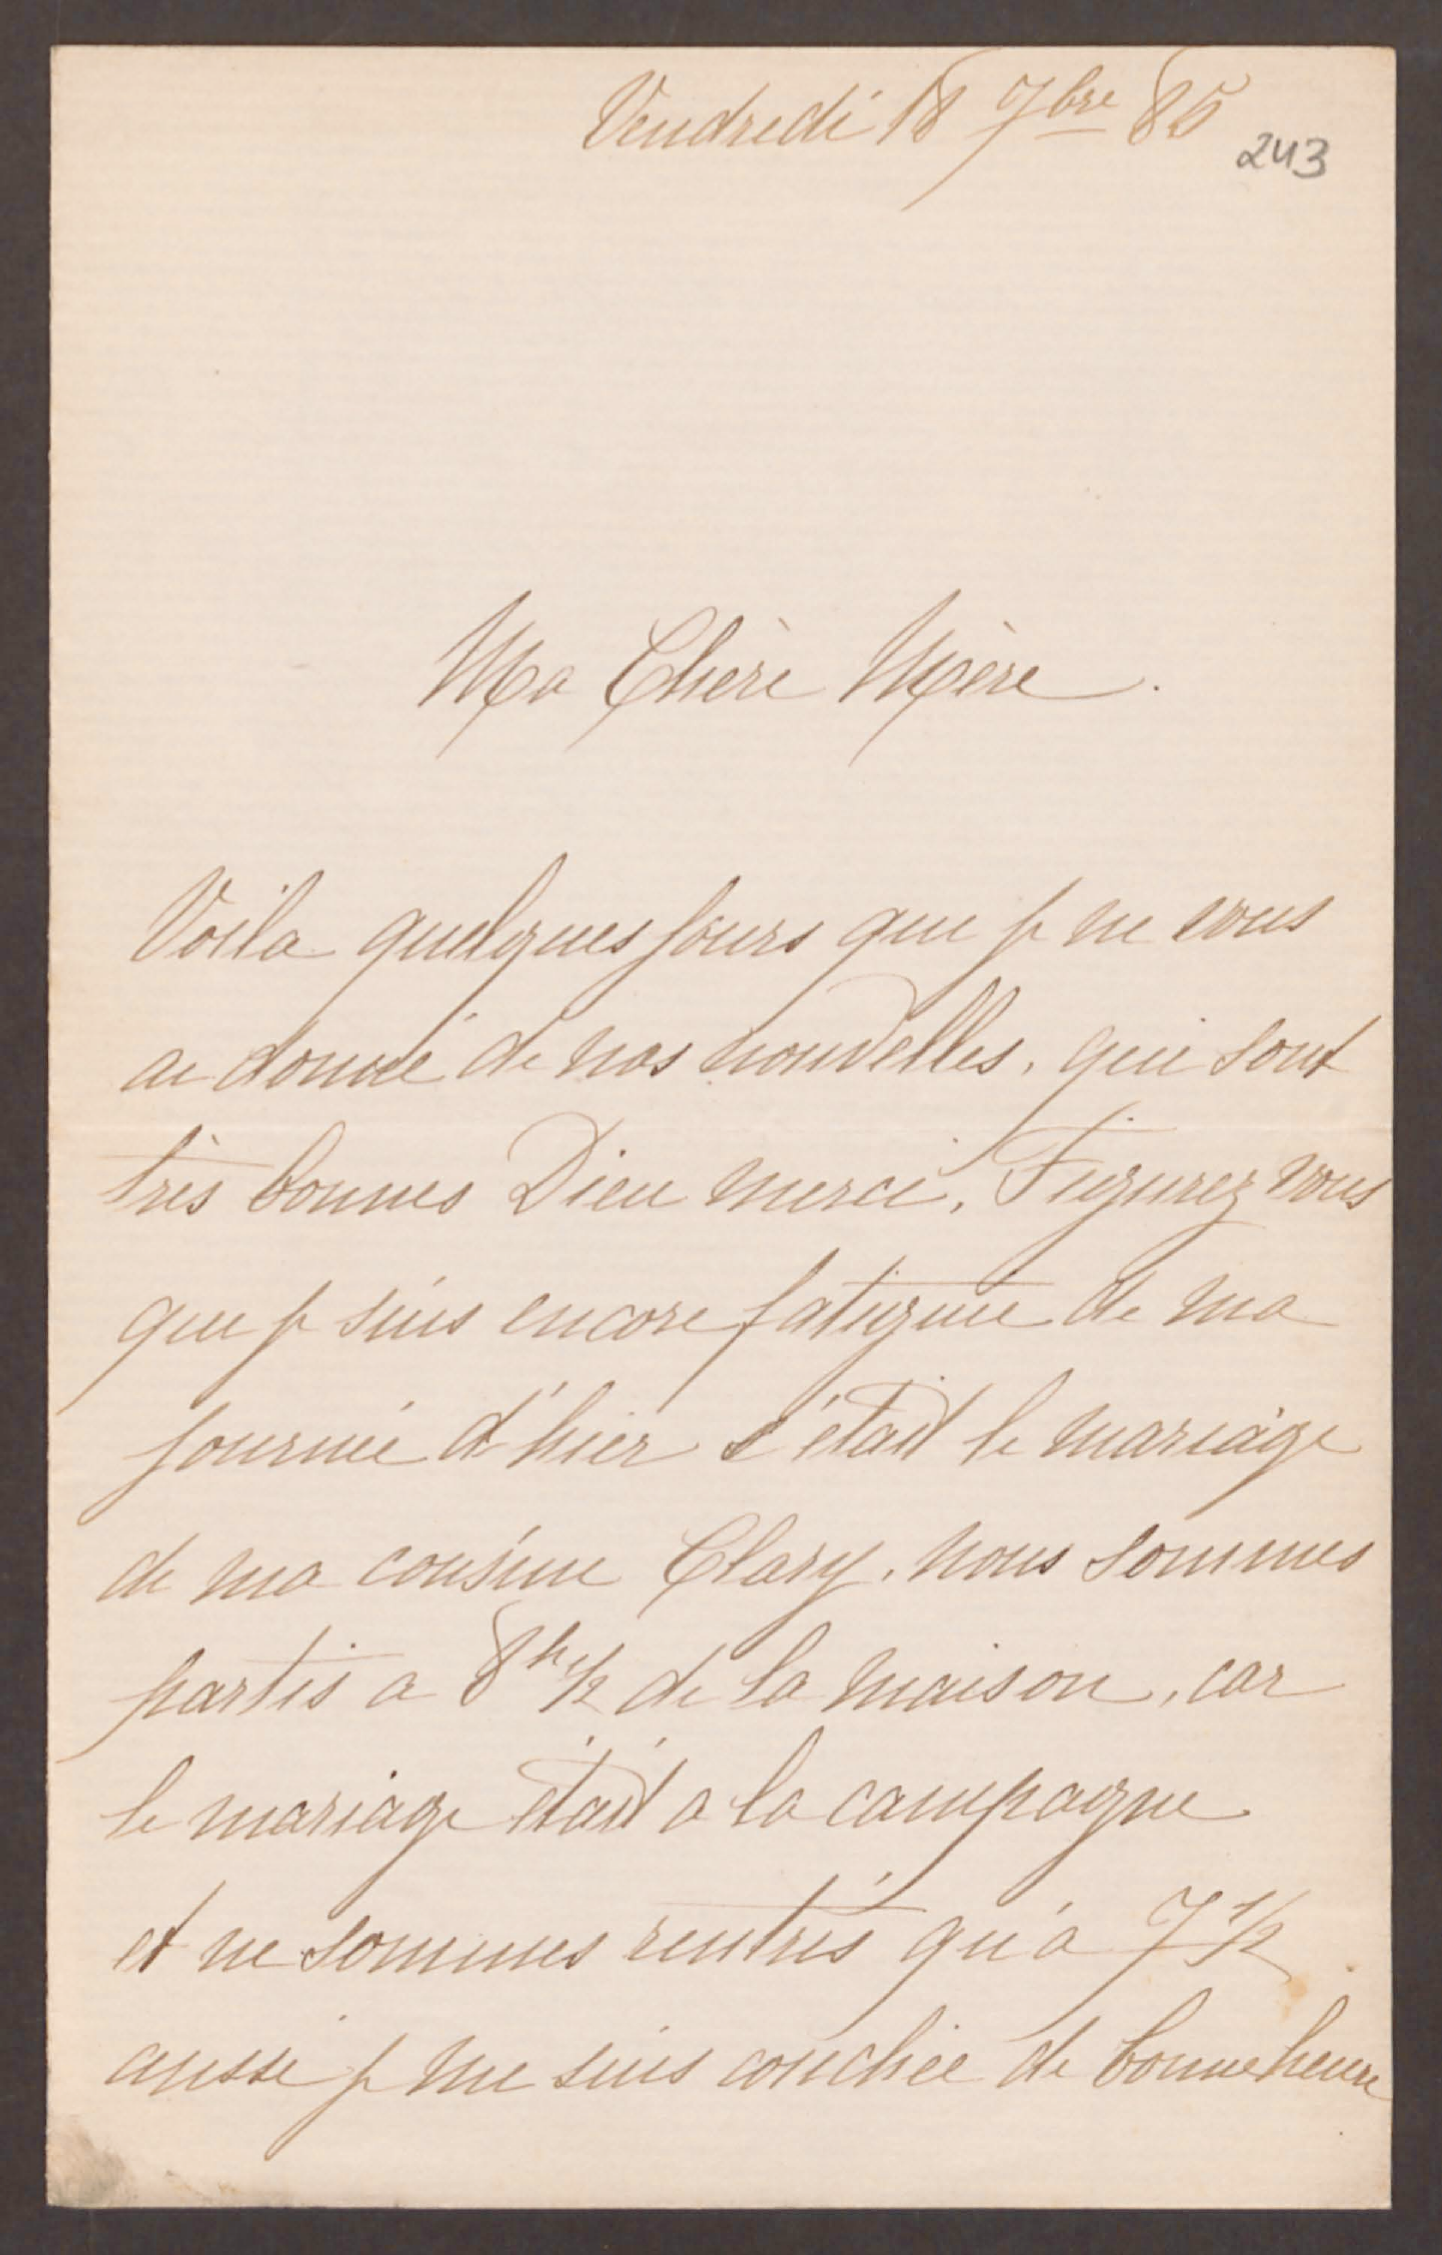 Vendredi 18 7bre 85
243
Ma Chère Mère.
Voila quelques jours que je ne vous
ai donné de nos nouvelles, qui sont
très bonnes Dieu merci, Figurez vous
que je suis encore fatiguée de ma
journée d'hier c'était le mariage
de ma cousine Clary, nous sommes
partis a 8h 1/2 de la maison, car
le mariage était a la campagne
et ne sommes rentrés qu'a 7 1/2
aussi je me suis couchée de bonne heure